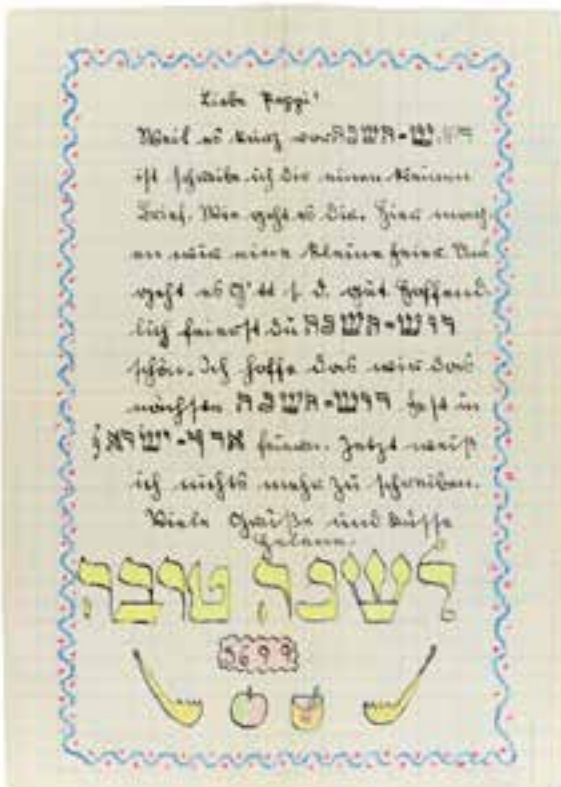 Liebe Pappi!
Weil es kurz vor ראש-השנה
ist schreibe ich dir einen kleinen
Brief. Wie geht es Dir. Hier mach-
en wir eine kleine Feier. Uns
geht es G'tt s. D. gut hoffend-
lich feierst du ראש-השנה
schön. Ich hoffe das wir das
nächste ראש-השנה Fest in
ארץ-ישראל feiern. Jetzt weiß
ich nichts mehr zu schreiben.
Viele Grüße und Küsse
לשנה טובה
5699